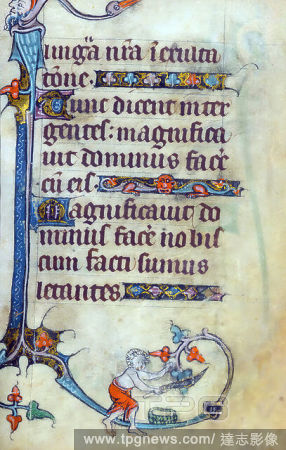 lingua nr̃a ı exulta
tōne.
Tunc dicent inter
gentes: magnifica
uit dominus face
cū eis.
Magnificauit do
minus face nobis
cum facti sumus
letantes
www.tpgnews.com/ 達志影像